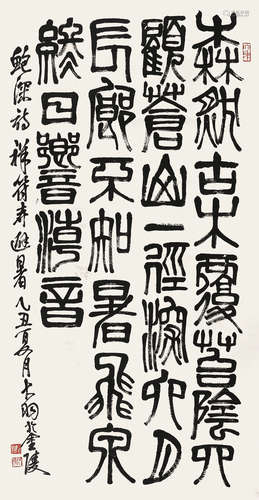 森然古木覆苔陰四
顧蒼山一徑深六月
長廊不知暑飛泉
終日響清音
鮑深詩祥符寺避暑乙丑夏月大羽於金陵